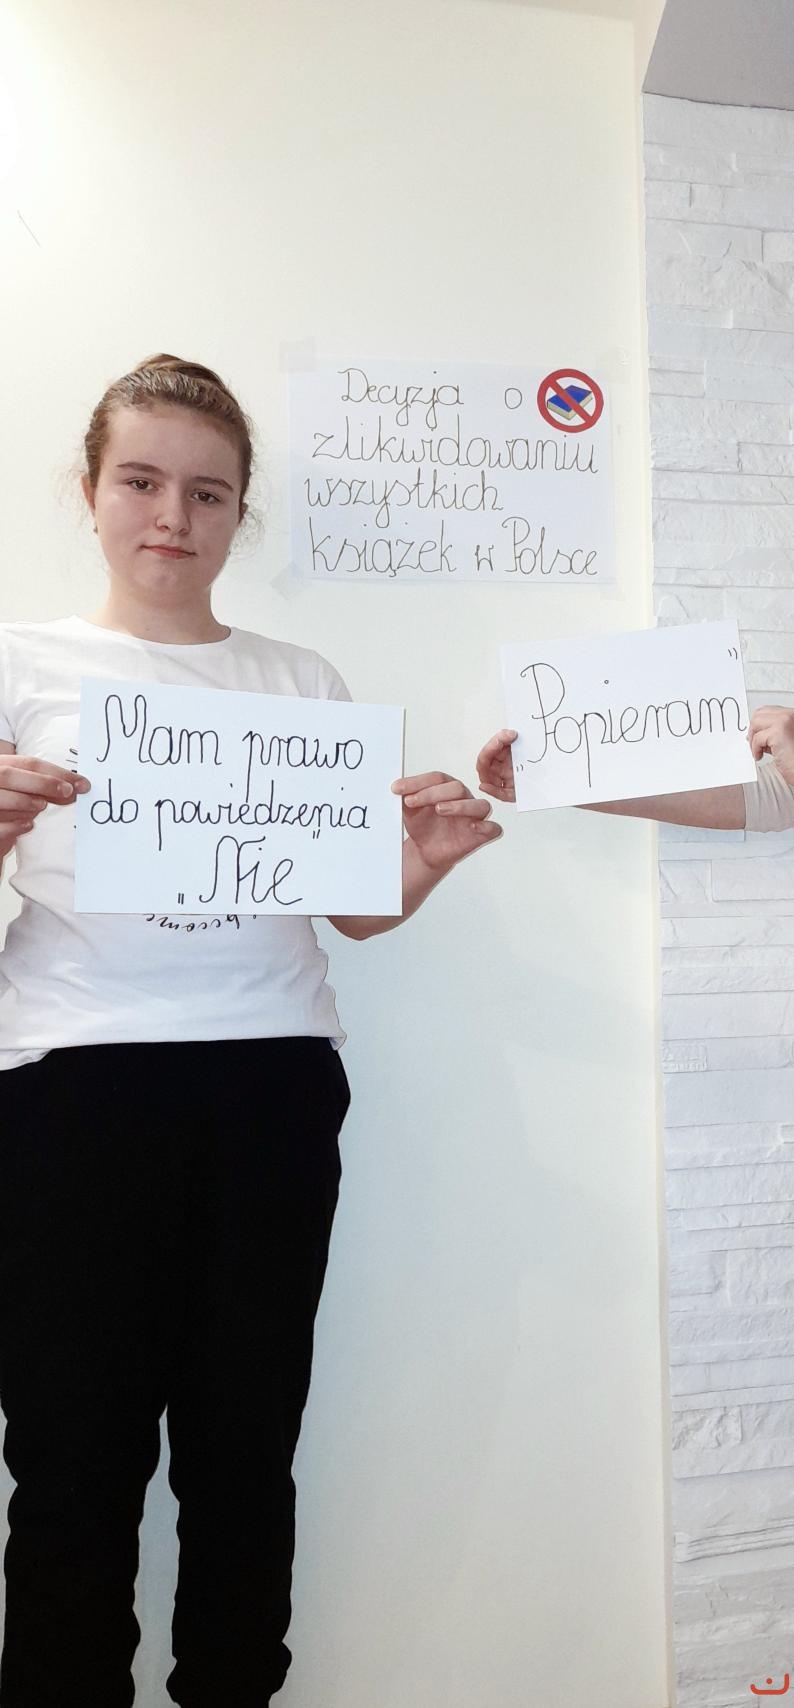 Decyzja o
zlikwidowaniu
wszystkich
książek w Polsce
„Popieram"
Mam prawo
do powiedzenia
„Nie"